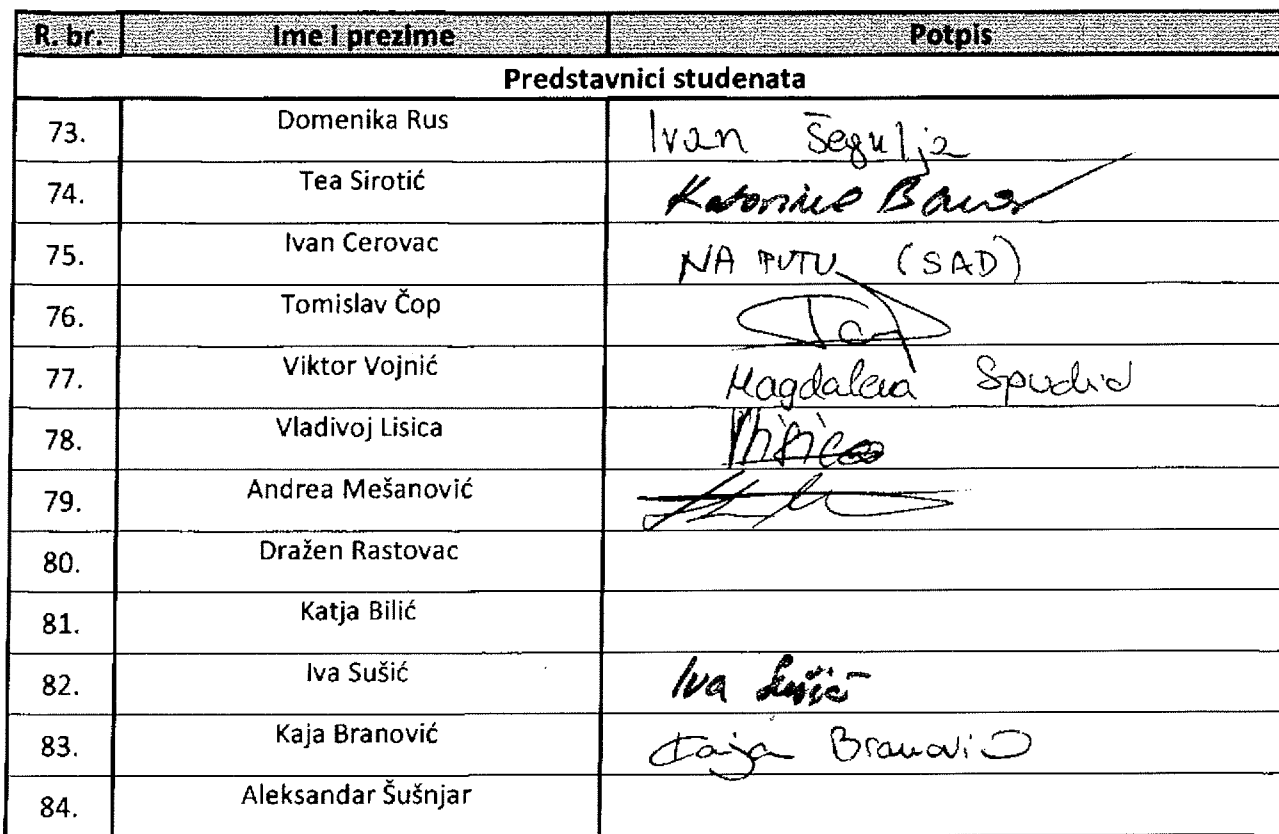 R. br. Ime i prezime Potpis
Predstavnici studenata
73. Domenika Rus Ivan Šegulja
74. Tea Sirotić
75. Ivan Cerovac NA PUTU (SAD)
76. Tomislav Čop
77. Viktor Vojnić Magdalena
78. Vladivoj Lisica
79. Andrea Mešanović
80. Dražen Rastovac
81. Katja Bilić
82. Iva Sušić Iva Sušić
83. Kaja Branović Kaja Branović
84. Aleksandar Šušnjar